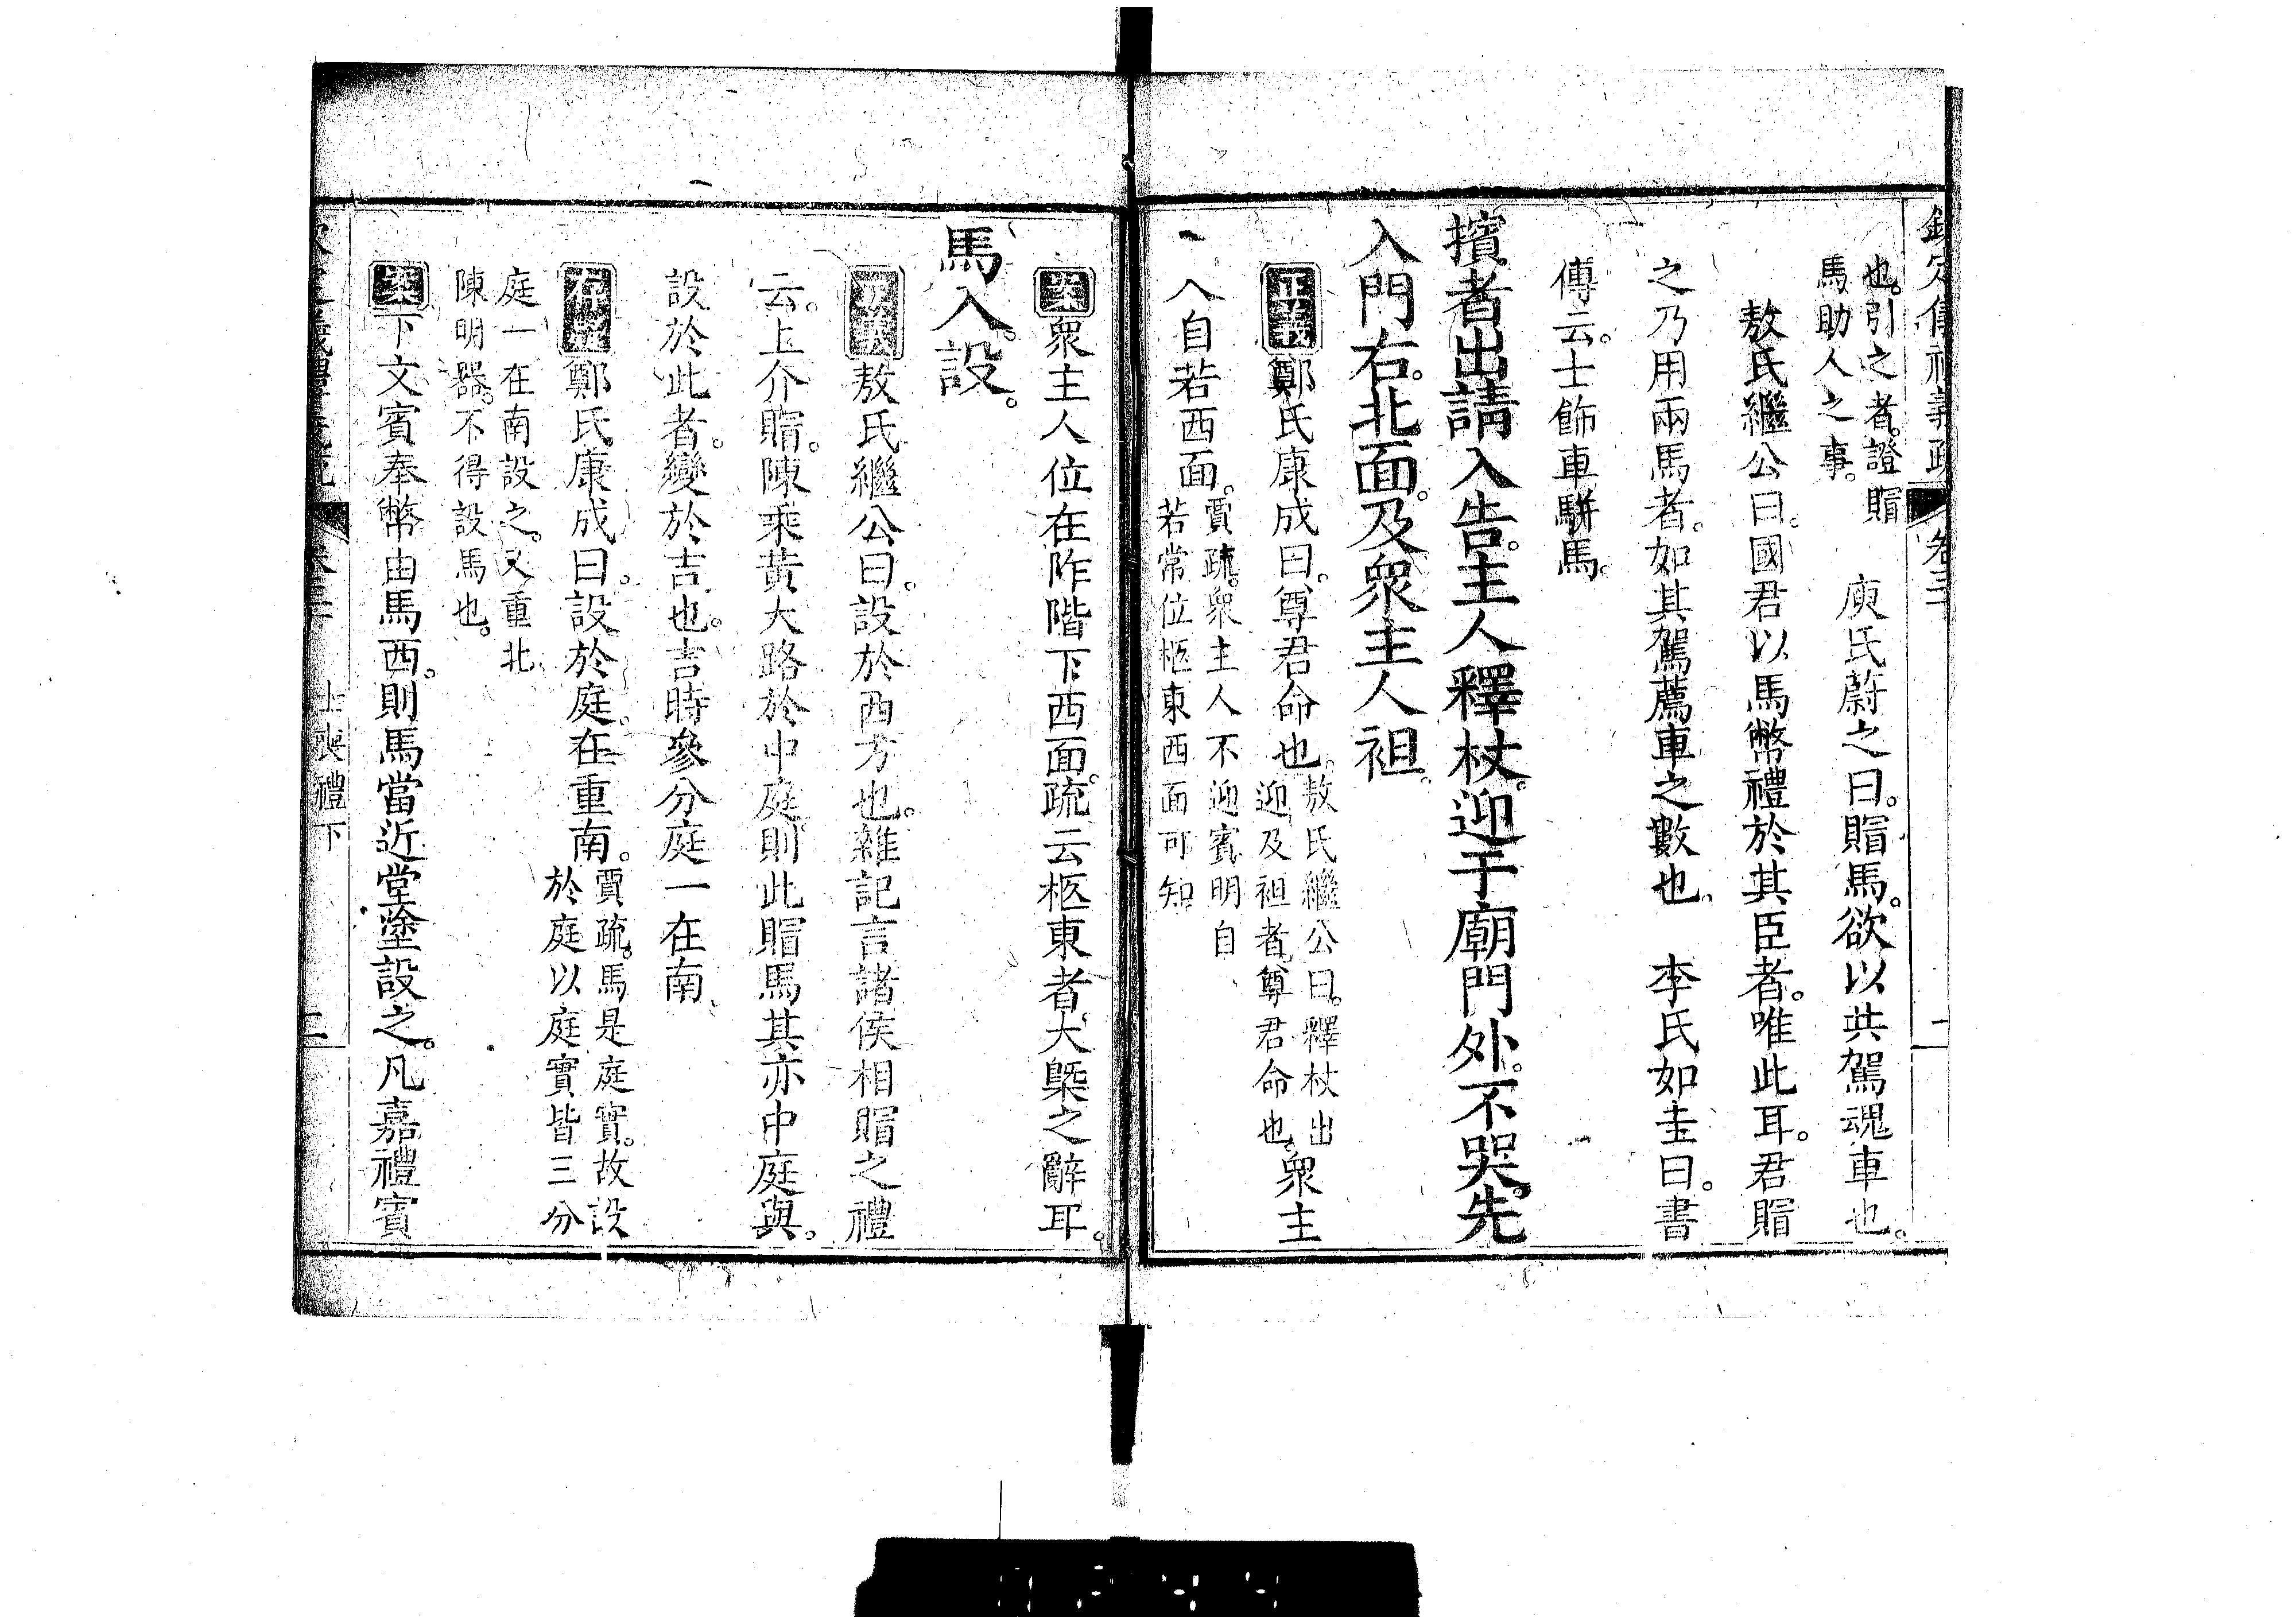 也。引之者。證賵
馬助人之事。
庾氏蔚之曰。賵馬。欲以共駕魂車也。
敖氏繼公曰。國君以馬幣禮於其臣者。唯此耳。君賵
之乃用兩馬者。如其駕薦車之數也。李氏如圭曰。書
傳云。士飾車駢馬。
擯者出請入告。主人釋杖。迎于廟門外。不哭。先
入門右。北面。及衆主人袒。
正義鄭氏康成曰。尊君命也。
敖氏繼公曰。釋杖出
迎及袒者。尊君命也。
衆主
人自若西面。
賈疏。衆主人不迎賓明自
若常位柩東西面可知
案衆主人位在阼階下西面。疏云柩東者。大槩之辭耳。
馬入。設。
正義敖氏繼公曰。設於西方也。雜記言諸侯相賵之禮
云。上介賵。陳乘黃大路於中庭。則此賵馬其亦中庭與。
設於此者。變於吉也。吉時參分庭一在南
存疑鄭氏康成曰。設於庭。在重南。
賈疏。馬是庭實。故設
於庭以庭實皆三分
庭一在南設之。又重北
陳明器。不得設馬也。
案下文賓奉幣由馬西。則馬當近堂塗設之。凡嘉禮賓
士喪禮下 二